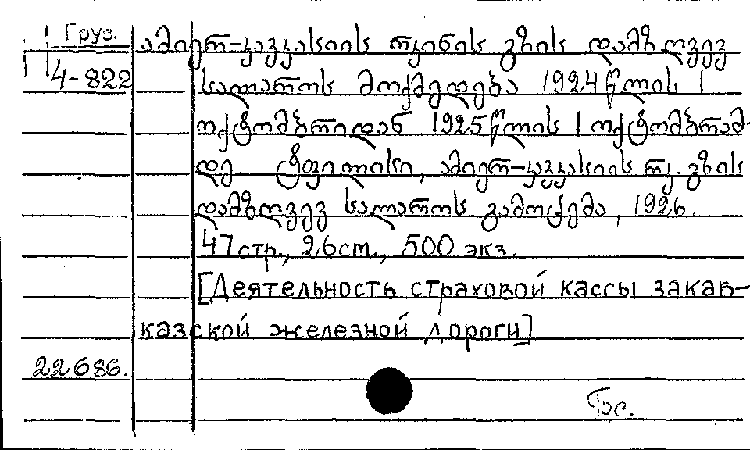 Груз.
ამიერ-კავკასიის რკინის გზის დამზღვევ
4-822 სალაროს მოქმედება 1924 წლის 1
ოქტომბრიდან 1925 წლის 1 ოქტომბრამ-
დე ტფილისი, ამიერ-კავკასიის რკ. გზის
დამზღვევ სალაროს გამოცემა, 1926.
47 стр., 26 cm., 500 экз.
[Деятельность страховой кассы закав-
казской железной дороги]
22686.